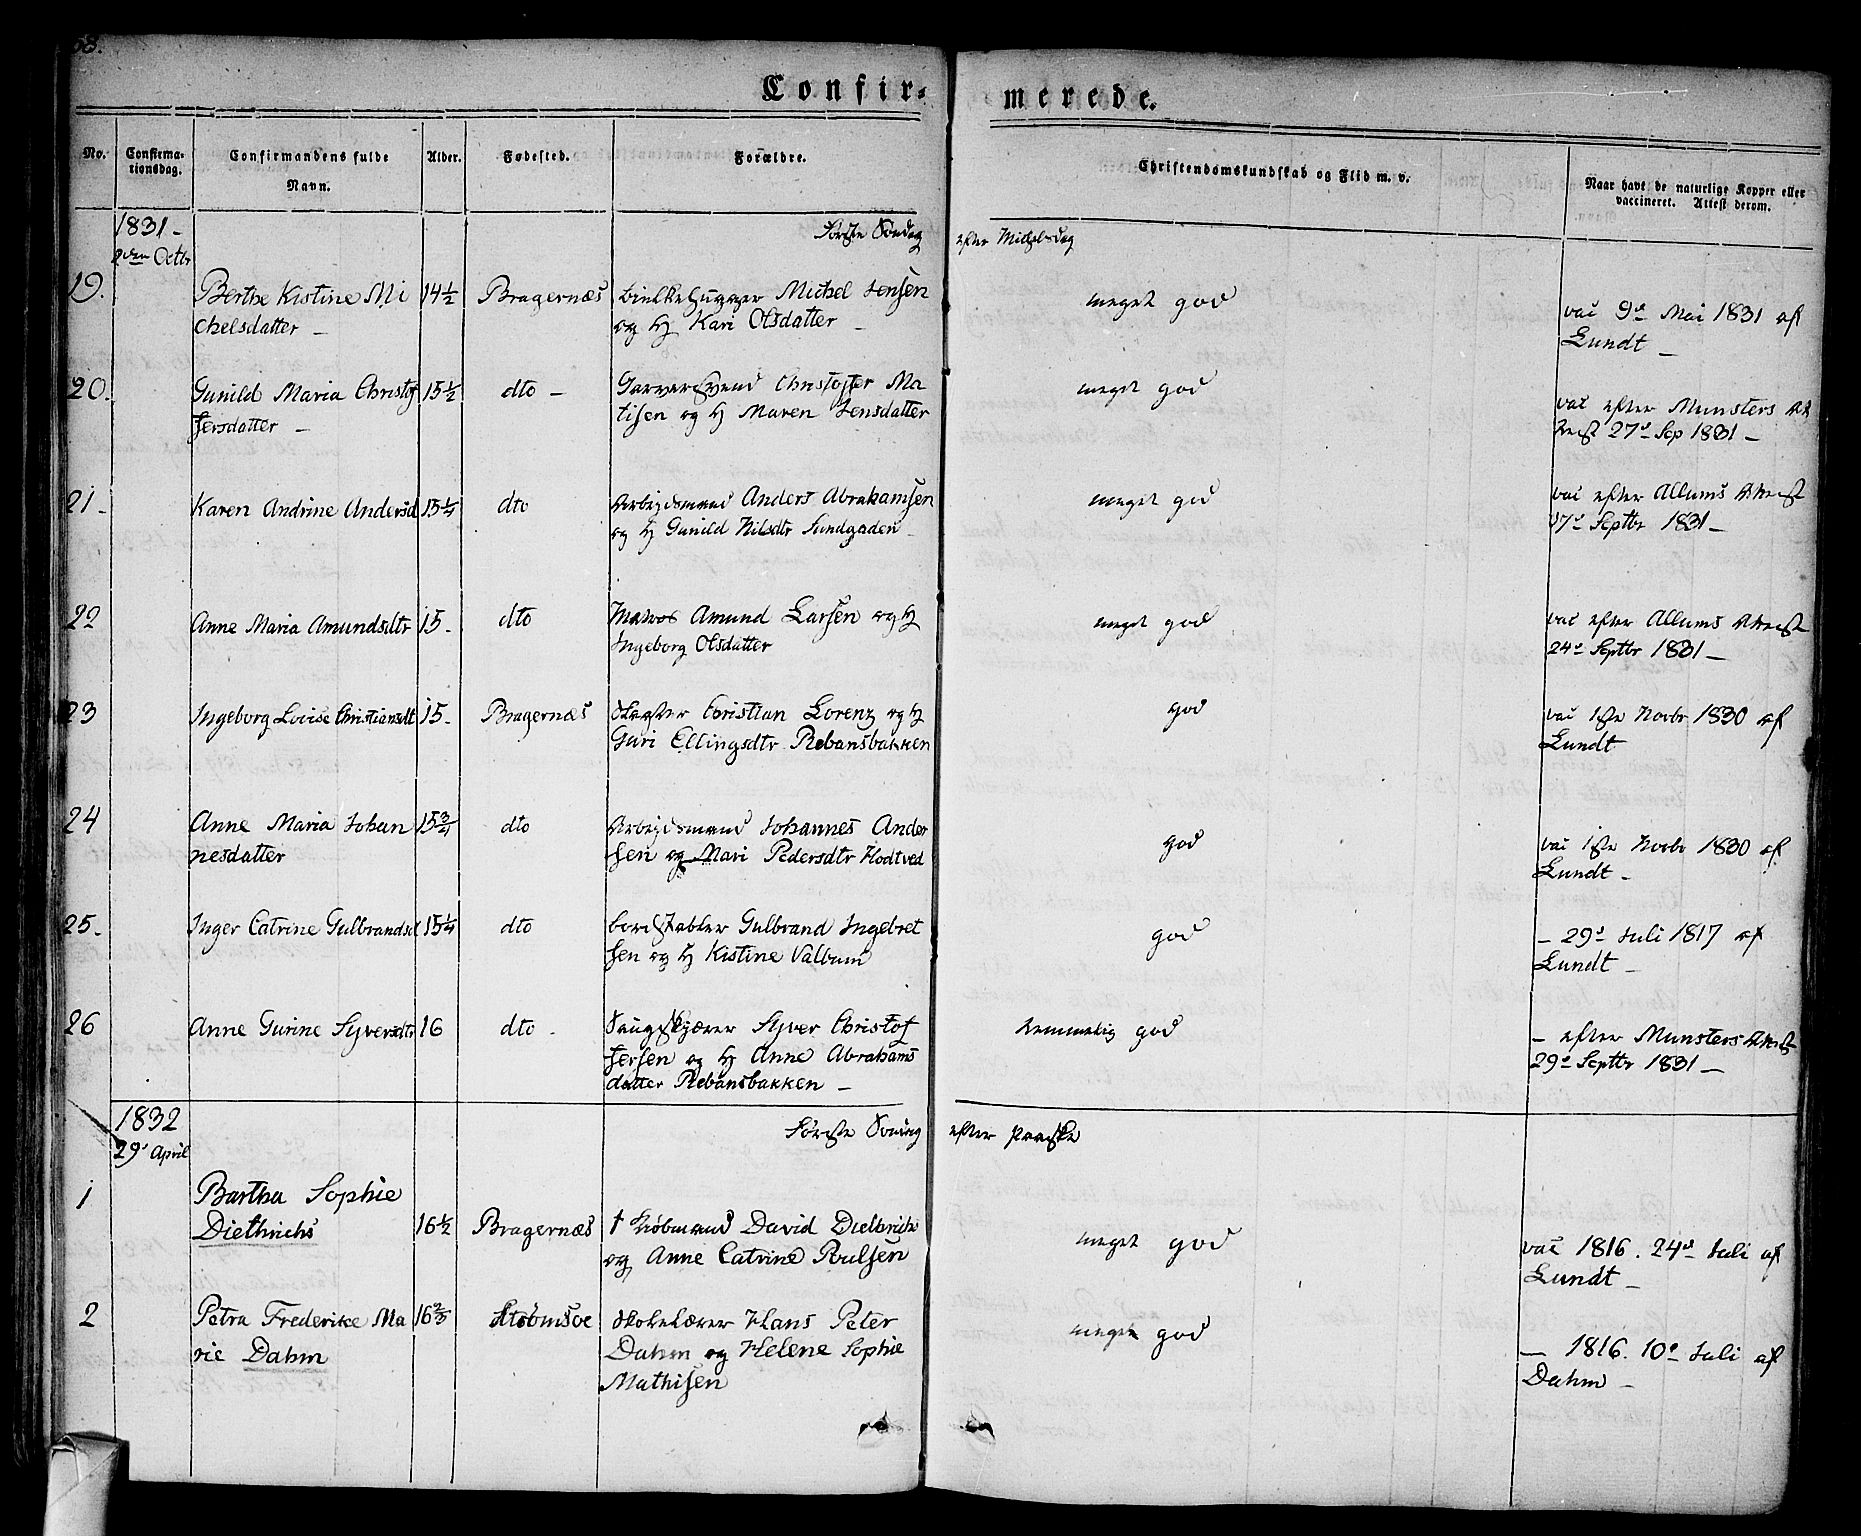 68.
Confir-
merede.
No.
Confirma-
tionsdag.
Confirmandens fulde
Navn.
Alder.
Fødested.
Forældre.
Christendomskundskab og Flid m. v.
Naar havt de naturlige Kopper eller
vaccineret. Attest derom.
1831 -
2den Octbr
Første Søndag
efter Michelsdag
19.
Berthe Kistine Mi
chelsdatter -
14½
Bragernæs
Michel Jensen
og H Kari Olsdatter -
meget god
vac 9de Mai 1831 af
Lundt -
20.
Gunild Maria Christof
fersdatter -
15½
dto -
Garversvend Christoffer Ma
tisen og H Maren Jensdatter
meget god
vac efter Munsters At
test 27de Sep 1831 -
21 -
Karen Andrine Andersd
15¼
dto
Arbejdsmand Anders Abrahamsen
og H Gunild Nilsdtr Sundgaden
meget god
vac efter Allums Attest
17de Septbr 1831 -
22
Anne Maria Amundsdtr
15 -
dto
Matros Amund Larsen og H
Ingeborg Olsdatter
meget god
vac efter Allums Attest
24de Septbr 1831 -
23
Ingeborg Lovise Christiansdt
15 -
Bragernæs
Christian Lorenz og H
Guri Ellingsdtr Rebansbakken
god
vac 1ste Novbr 1830 af
Lundt
24
Anne Maria Johan
nesdatter
15¾
dto
Arbejdsmand Johannes Ander
sen og Mari Pedersdtr Hodtved
god
vac 1ste Novbr 1830 af
Lundt -
25 -
Inger Catrine Gulbrandsd
15¼
dto
bordstabler Gulbrand Ingebret
sen og H Kistine Valbum
god
- 29de Juli 1817 af
Lundt -
26
Anne Gurine Syversdtr
16
dto -
Saugskjærer Syver Christof
fersen og H Anne Abrahams
datter Rebansbakken -
temmelig god
- efter Munsters Attest
29de Septbr 1831 -
1832
29de April
Første Søndag
efter Paaske
1
Bartha Sophie
Diethrichs
16½
Bragernæs
† Kiøbmand David Diethrichs
og Anne Catrine Poulsen
meget god
vac 1816. 24de Juli af
Lundt -
2
Petra Frederike Ma
rie Dahm
16⅔
Strømsoe
Skolelærer Hans Peter
Dahm og Helene Sophie
Mathisen
meget god
- 1816. 10de Juli af
Dahm -